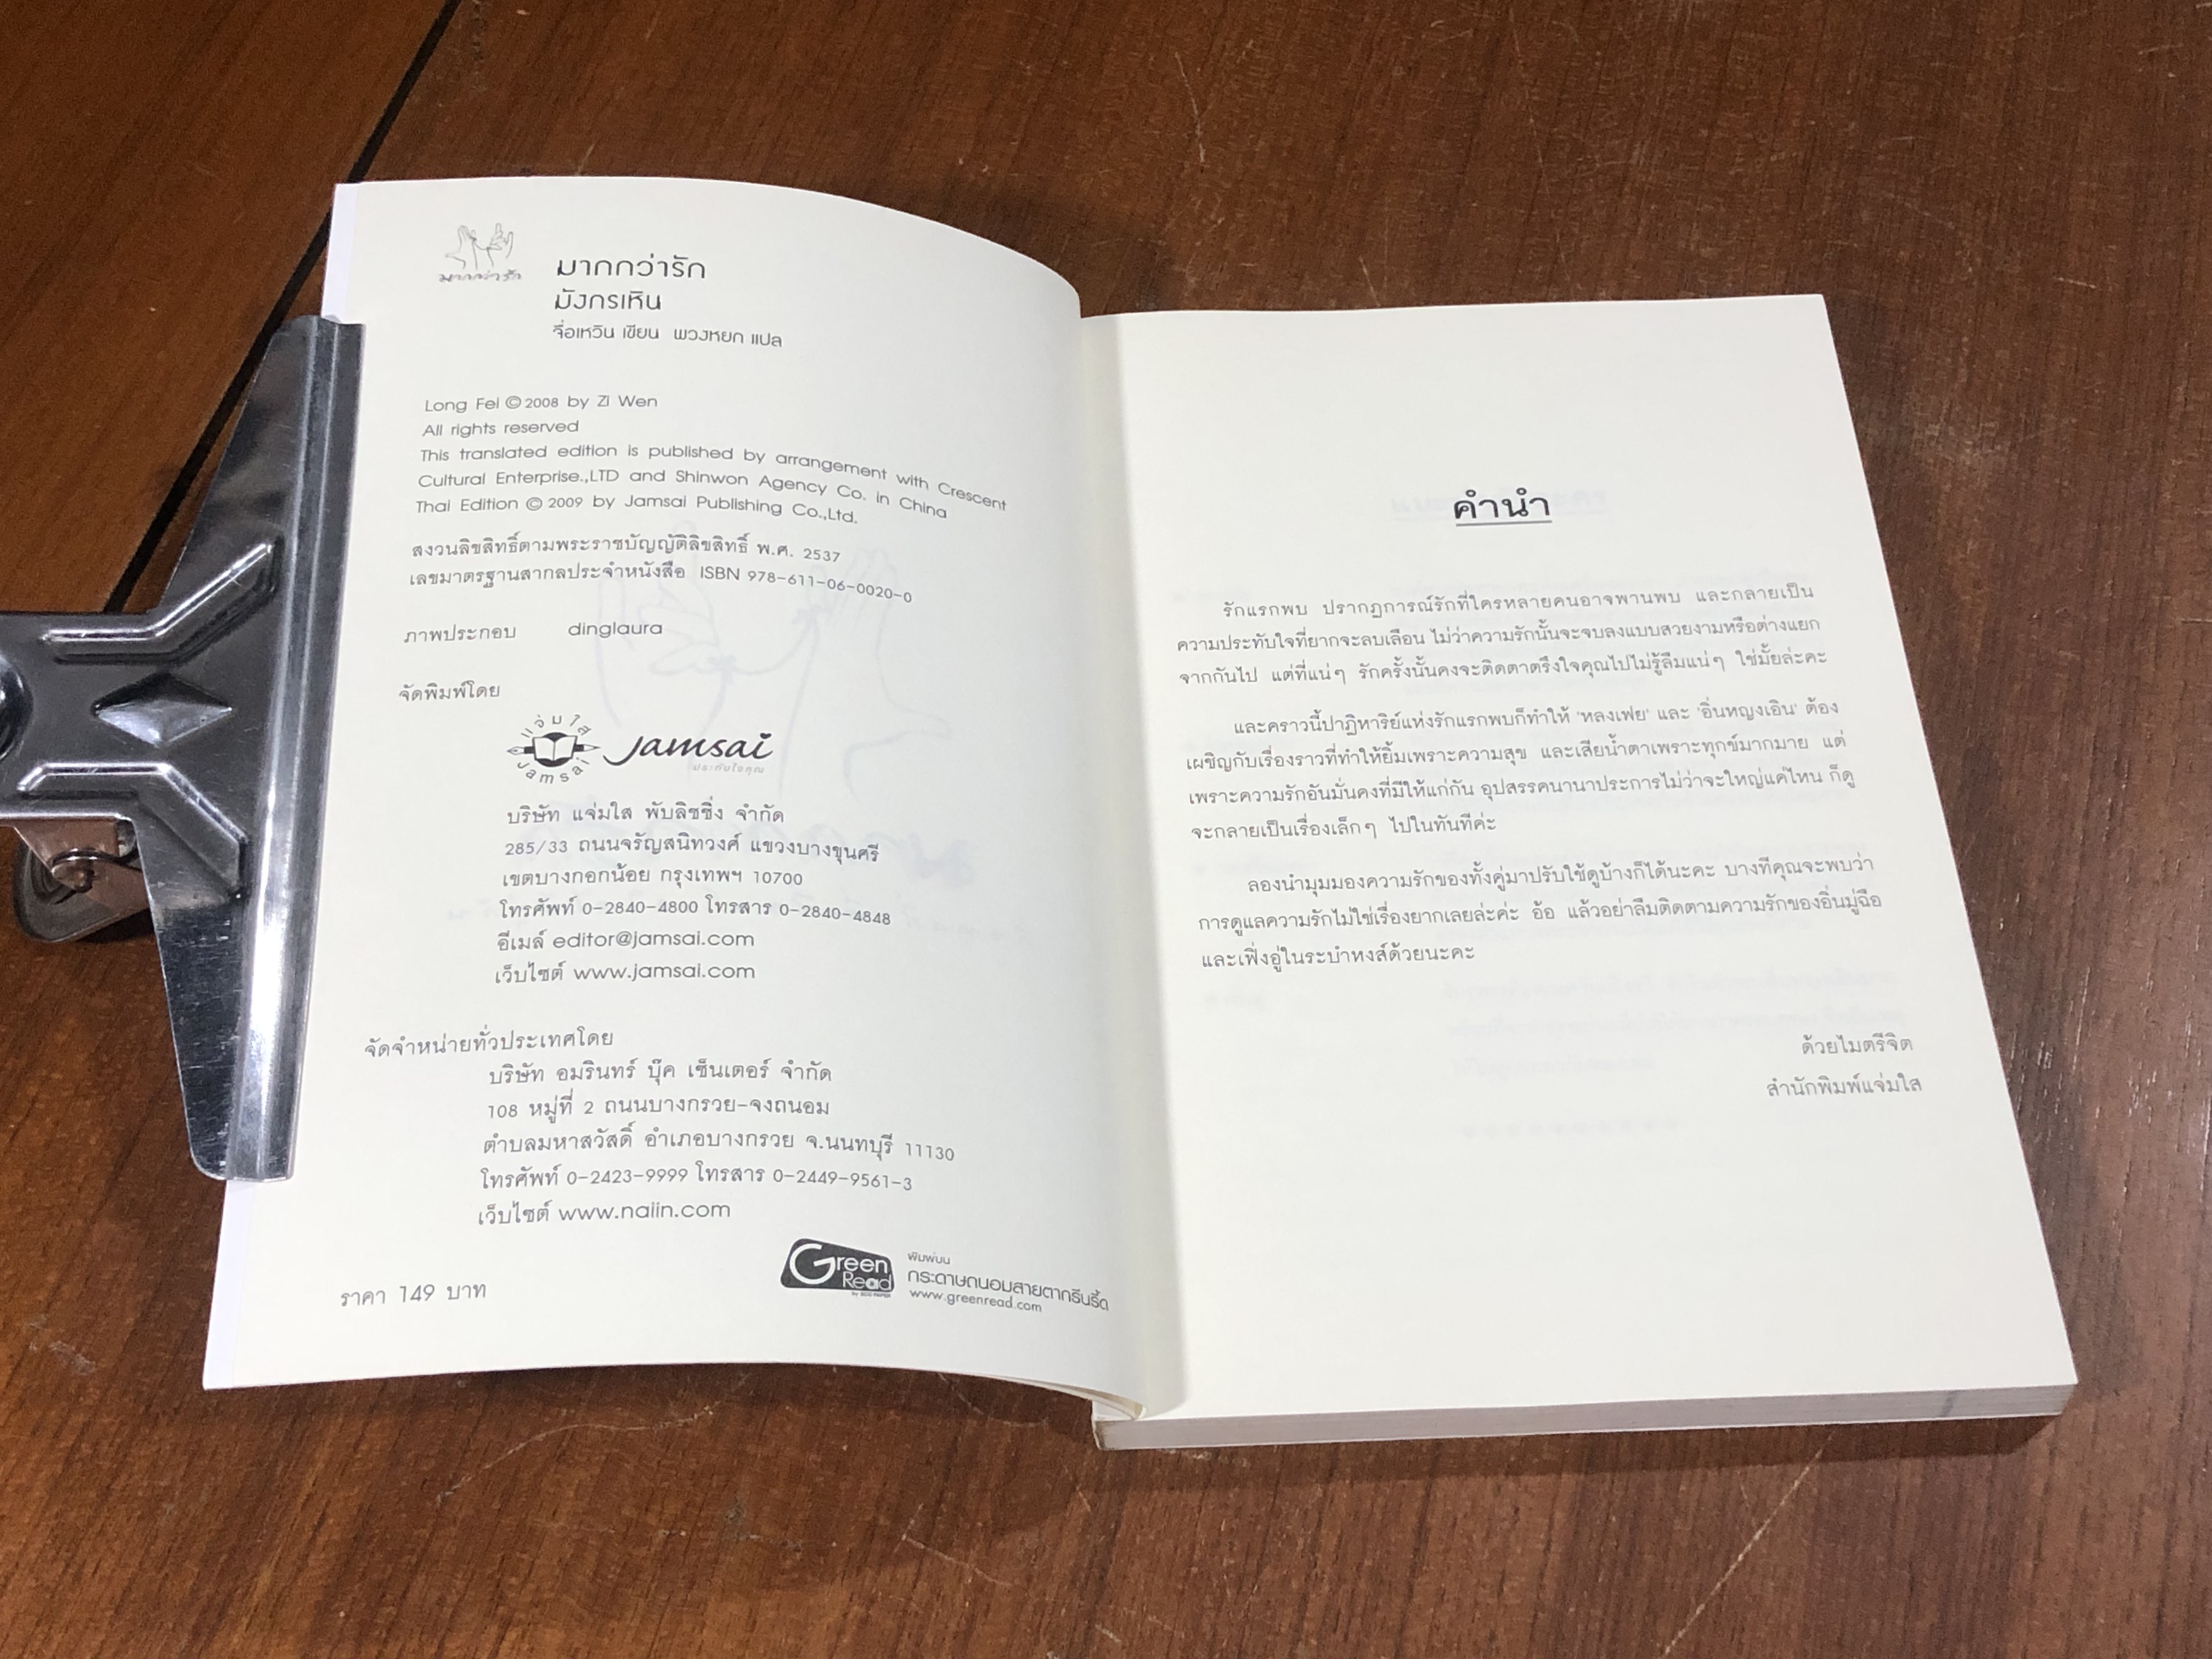 มากกว่ารัก
มากกว่ารัก
มังกรเหิน
จื่อเหวิน เขียน พวงหยก แปล
Long Fei © 2008 by Zi Wen
All rights reserved
This translated edition is published by arrangement with Crescent
Cultural Enterprise.,LTD and Shinwon Agency Co. in China
Thai Edition © 2009 by Jamsai Publishing Co.,Ltd.
สงวนลิขสิทธิ์ตามพระราชบัญญัติลิขสิทธิ์ พ.ศ. 2537
เลขมาตรฐานสากลประจำหนังสือ ISBN 978-611-06-0020-0
ภาพประกอบ dinglaura
จัดพิมพ์โดย
แจ่มใส
Jamsai
Jamsai
ประทับใจคุณ
บริษัท แจ่มใส พับลิชชิ่ง จำกัด
285/33 ถนนจรัญสนิทวงศ์ แขวงบางขุนศรี
เขตบางกอกน้อย กรุงเทพฯ 10700
โทรศัพท์ 0-2840-4800 โทรสาร 0-2840-4848
อีเมล์ editor@jamsai.com
เว็บไซต์ www.jamsai.com
จัดจำหน่ายทั่วประเทศโดย
บริษัท อมรินทร์ บุ๊ค เซ็นเตอร์ จำกัด
108 หมู่ที่ 2 ถนนบางกรวย-จงถนอม
ตำบลมหาสวัสดิ์ อำเภอบางกรวย จ.นนทบุรี 11130
โทรศัพท์ 0-2423-9999 โทรสาร 0-2449-9561-3
เว็บไซต์ www.naiin.com
ราคา 149 บาท
Green
Read
พิมพ์บน
กระดาษถนอมสายตากรีนรี้ด
www.greenread.com
คำนำ
รักแรกพบ ปรากฏการณ์รักที่ใครหลายคนอาจพานพบ และกลายเป็น
ความประทับใจที่ยากจะลบเลือน ไม่ว่าความรักนั้นจะจบลงแบบสวยงามหรือต่างแยก
จากกันไป แต่ที่แน่ๆ รักครั้งนั้นคงจะติดตาตรึงใจคุณไปไม่รู้ลืมแน่ๆ ใช่มั้ยล่ะคะ
และคราวนี้ปาฏิหาริย์แห่งรักแรกพบก็ทำให้ 'หลงเฟย' และ 'อิ่นหญงเอิน' ต้อง
เผชิญกับเรื่องราวที่ทำให้ยิ้มเพราะความสุข และเสียน้ำตาเพราะทุกข์มากมาย แต่
เพราะความรักอันมั่นคงที่มีให้แก่กัน อุปสรรคนานาประการไม่ว่าจะใหญ่แค่ไหน ก็ดู
จะกลายเป็นเรื่องเล็กๆ ไปในทันทีค่ะ
ลองนำมุมมองความรักของทั้งคู่มาปรับใช้ดูบ้างก็ได้นะคะ บางทีคุณจะพบว่า
การดูแลความรักไม่ใช่เรื่องยากเลยล่ะค่ะ อ้อ แล้วอย่าลืมติดตามความรักของอิ่นมู่ฉือ
และเฟิ่งอู่ในระบำหงส์ด้วยนะคะ
ด้วยไมตรีจิต
สำนักพิมพ์แจ่มใส